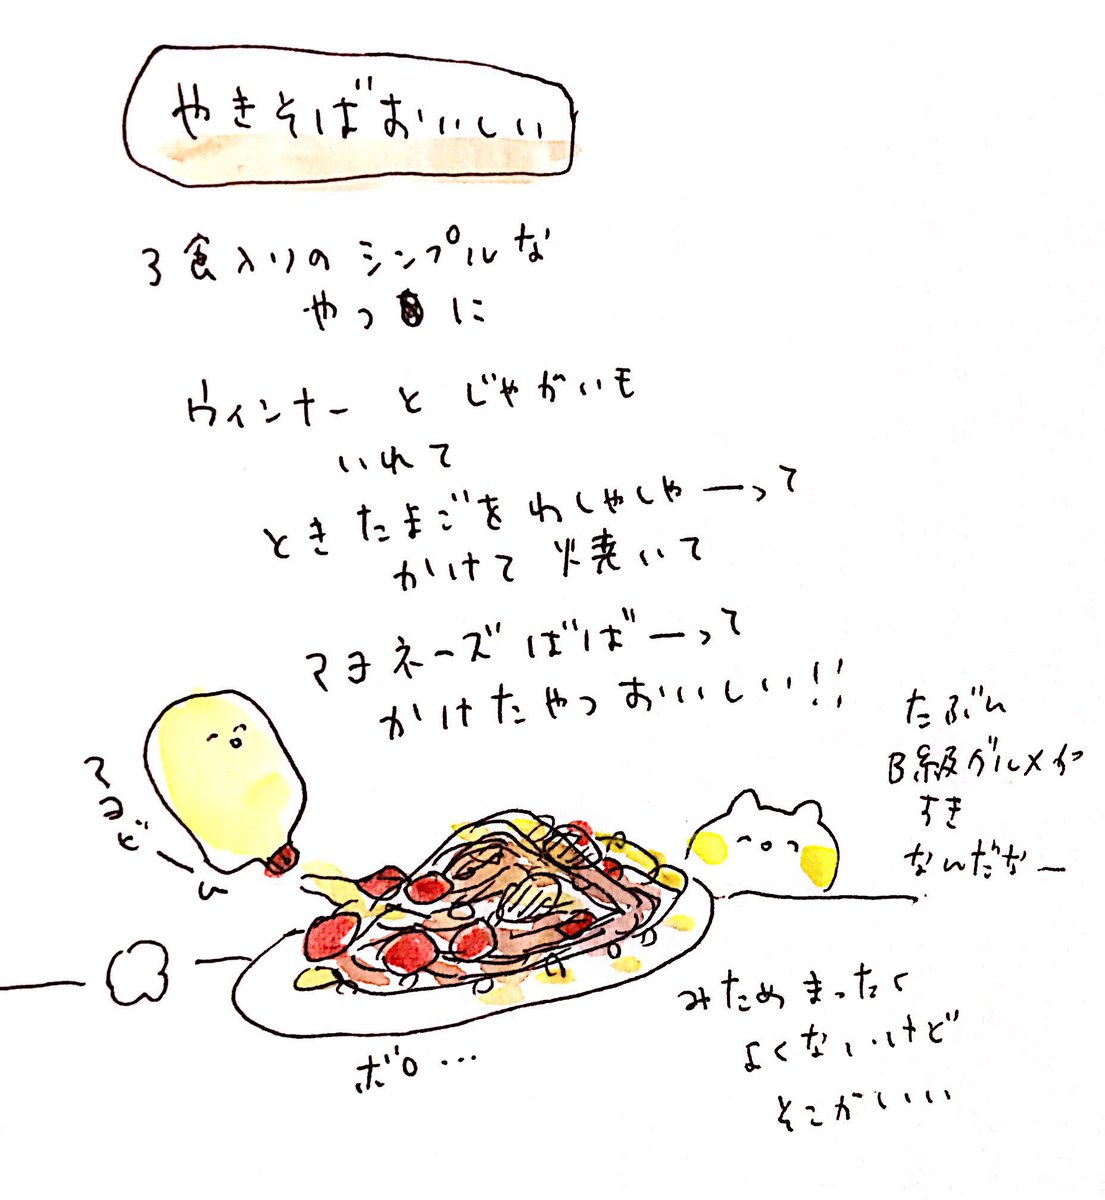 やきそばおいしい
3食入りのシンプルな
やつに
ウィンナーとじゃがいも
いれて
ときたまごをわしゃしゃーって
かけて焼いて
マヨネーズばばーって
かけたやつおいしい!!
たぶん
B級グルメが
すき
なんだなー
マヨどーん
ボロ…
みためまったく
よくないけど
そこがいい